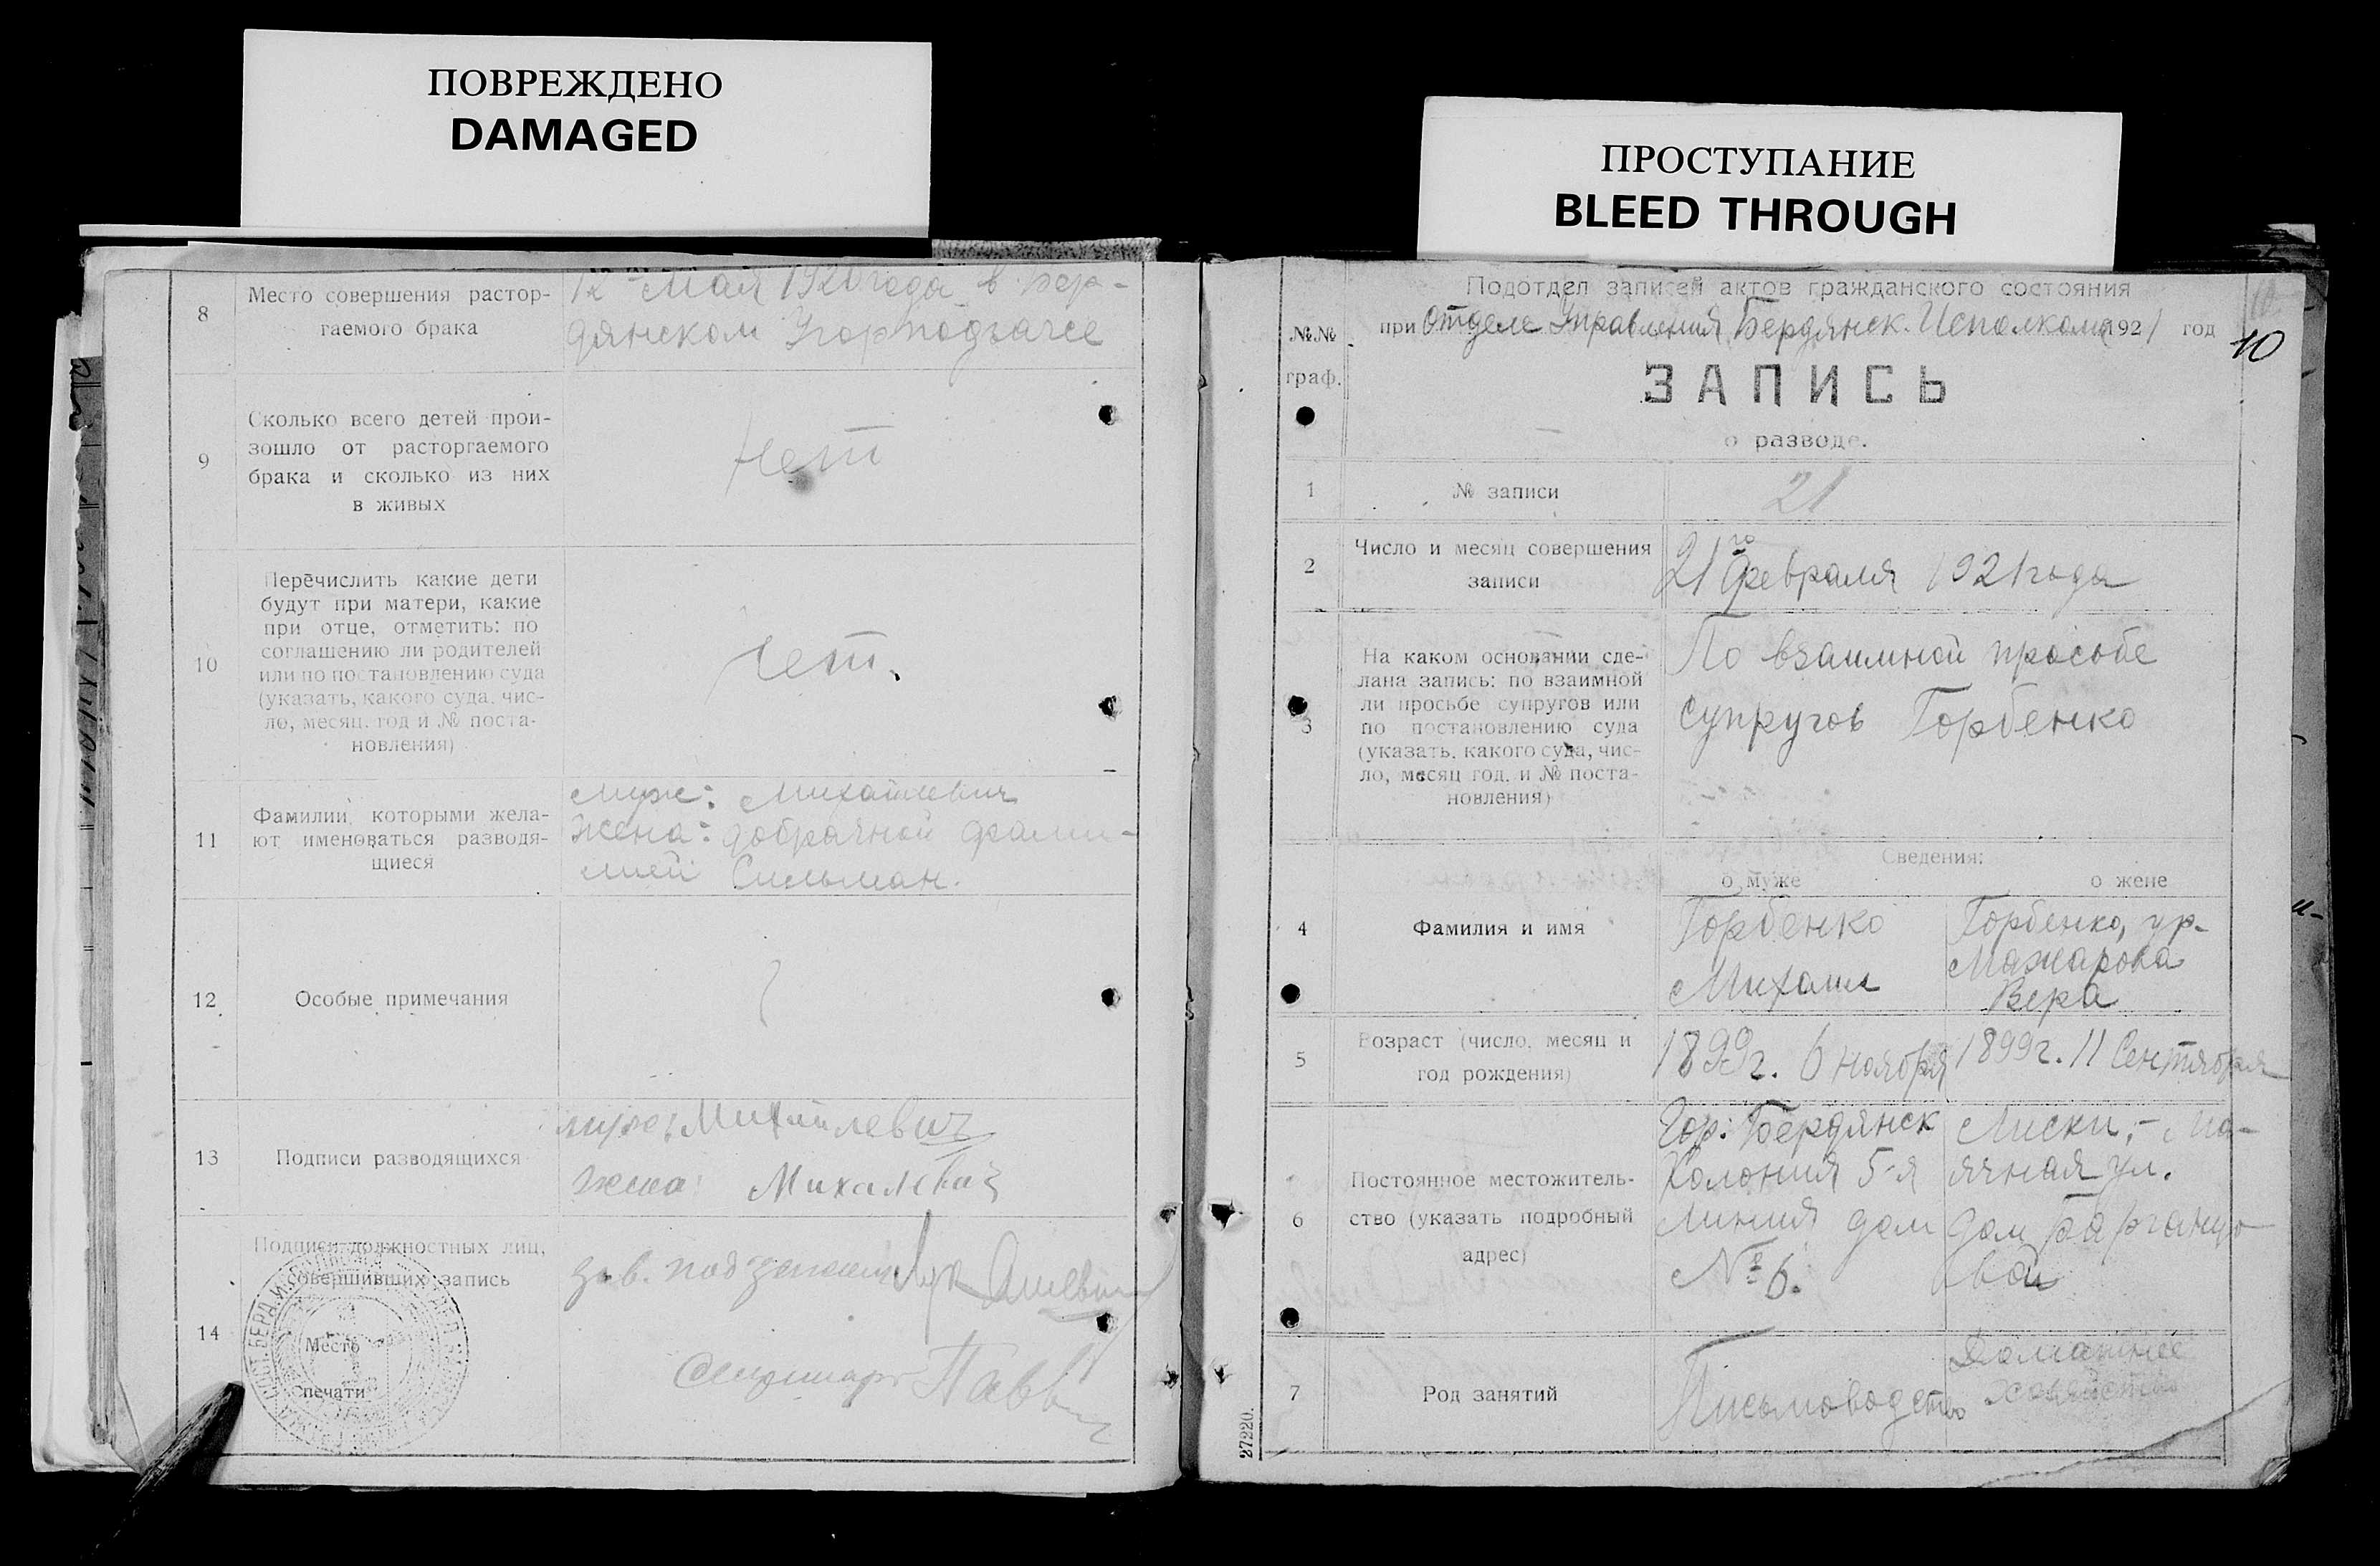 ПОВРЕЖДЕНО
DAMAGED
ПРОСТУПАНИЕ
BLEED THROUGH
8
Место совершения растор-
гаемого брака
12 Мая 1920 года в Бер-
дянском
9
Сколько всего детей прои-
зошло от расторгаемого
брака и сколько из них
в живых
нет
10
Перечислить какие дети
будут при матери, какие
при отце, отметить: по
соглашению ли родителей
или по постановлению суда
(указать, какого суда, чис-
ло, месяц, год и № поста-
новления)
нет.
11
Фамилии, которыми жела-
ют именоваться разводя-
щиеся
муж: Михайлевич
жена: добрачной фами-
лией Сильман.
12
Особые примечания
13
Подписи разводящихся
муж: Михайлевич
жена: Михалевич
14
Подписи должностных лиц,
совершивших запись
Место
печати
зав.
№№
граф.
Подотдел записей актов гражданского состояния
при Отделе Управления Бердянск. Исполкома 1921 год
10
ЗАПИСЬ
о разводе.
1
№ записи
21
2
Число и месяц совершения
записи
21го Февраля 1921 года
3
На каком основании сде-
лана запись: по взаимной
ли просьбе супругов или
по постановлению суда
(указать, какого суда, чис-
ло, месяц год, и № поста-
новления)
По взаимной просьбе
Супругов Горбенко
Сведения:
о муже
о жене
4
Фамилия и имя
Горбенко
Михаил
Горбенко, ур.
Мажарова
Вера
5
Возраст (число, месяц и
год рождения)
1899г. 6 Ноября
1899г. 11 Сентября
6
Постоянное местожитель-
ство (указать подробный
адрес)
Гор. Бердянск
Колония 5-я
Линия дом
№ 6.
Лиски, - Ма-
ячная ул.
дом
вой
7
Род занятий
Письмоводство
Домашнее
хозяйство
27220.